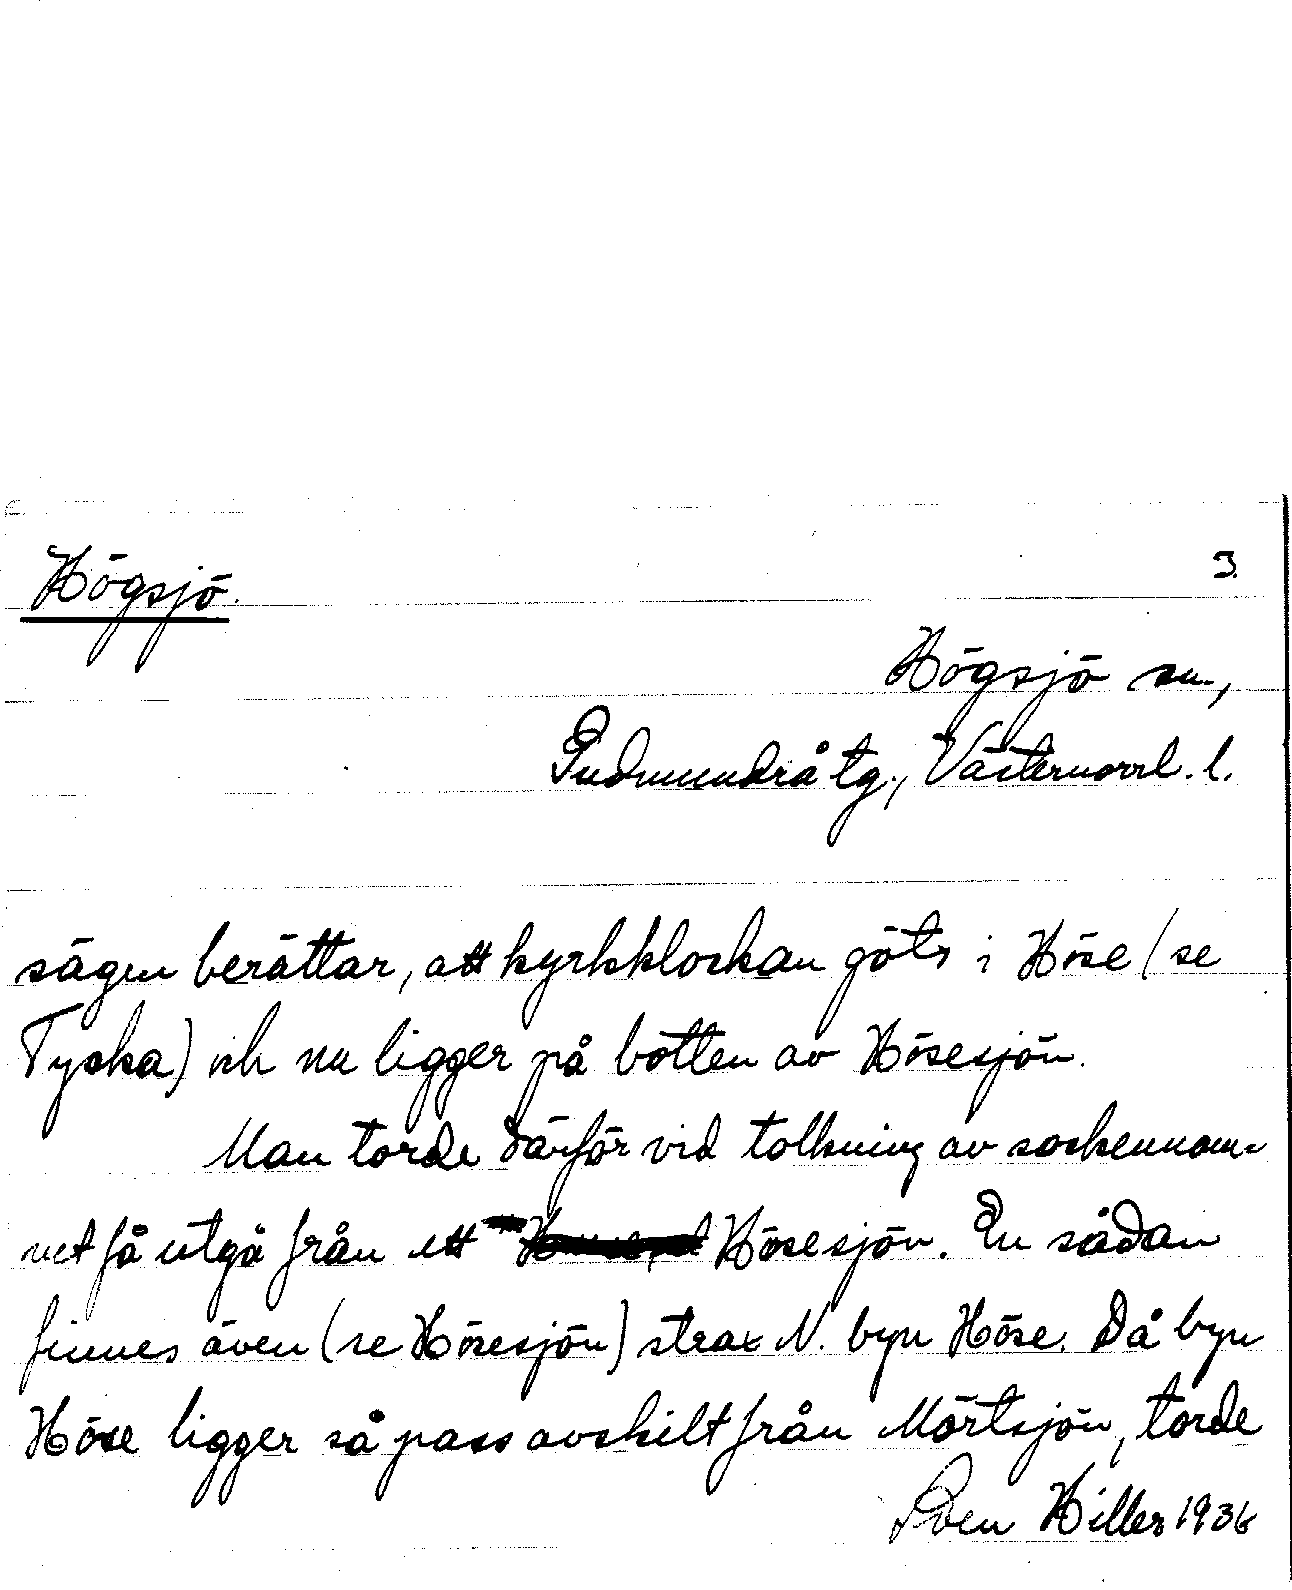 Högsjö.
3.
Högsjö sn.,
Gudmundrå tg., Västernorrl. l.
sägen berättar, att kyrkklockan göts i Höse (se
Tycka) och nu ligger på botten av Hösesjön.
Man torde därför vid tolkning av sockennam-
net få utgå från ett Hösesjön. En sådan
finnes även (se Hösesjön) strax N. byn Höse. Då byn
Höse ligger så pass avskilt från Mörtsjön, torde
Sven Hiller 1936